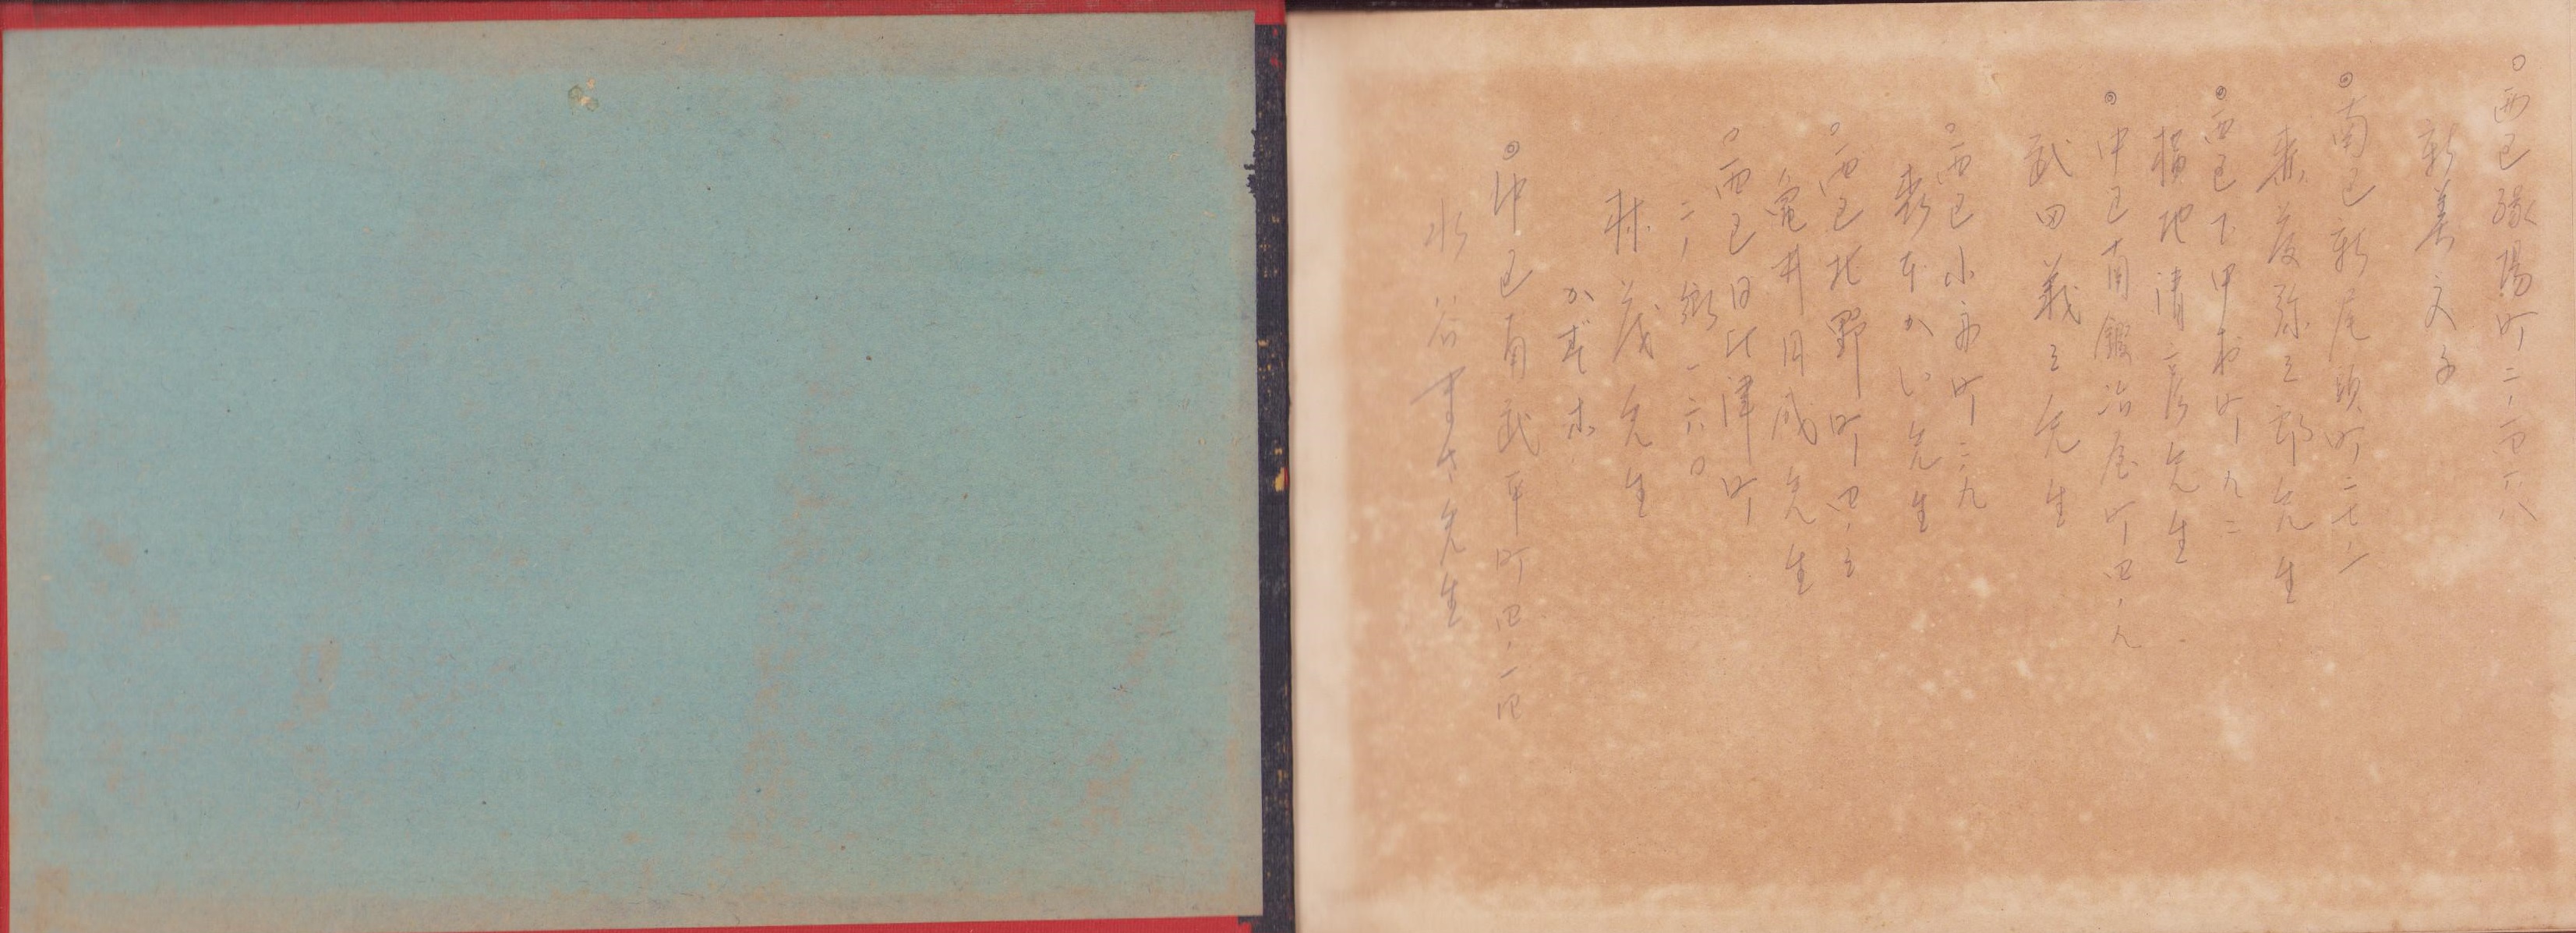 ○西区緑陽町二ノ四六八
新美文子
◎南区新尾頭町二七ノ一
森 茂弥三郎先生
◎西区下甲村町九二
横地清彦先生
◎中区南鍛冶屋町四ノ九
武田義三先生
○西区小舟町三ノ九
森本かい先生
○西区北野町四ノ三
亀井月成先生
○西区日比津町
二ノ郷一六〇
林 茂先生
かずを
◎中区南武平町四ノ一四
水谷まさ先生